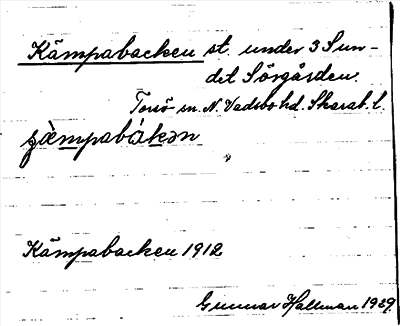 Kämpabacken st. under 3 Sun-
det Sörgården.
Torsö sn. N. Vadsbo hd. Skarab. l.
Kämpabacken 1912
Gunnar Hallman 1929.